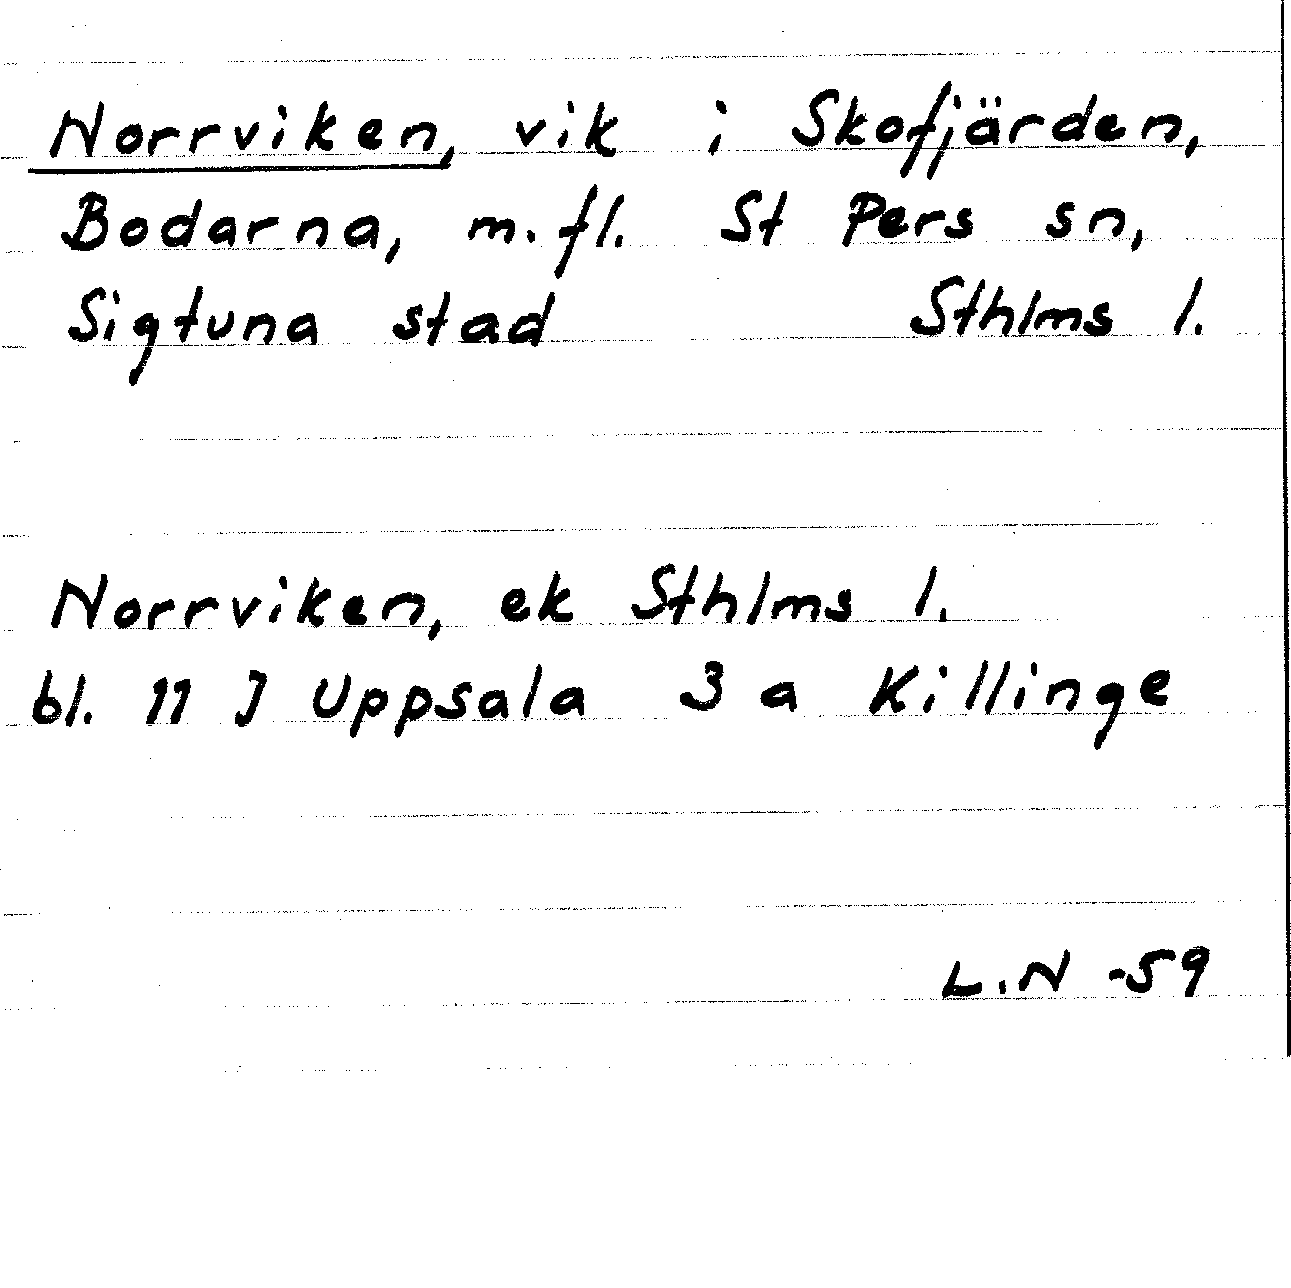 Norrviken, vik i Skofjärden,
Bodarna, m.fl. St Pers sn,
Sigtuna stad Sthlms l.
Norrviken, ek Sthlms l.
bl. 11 J Uppsala 3 a Killinge
L.N -59